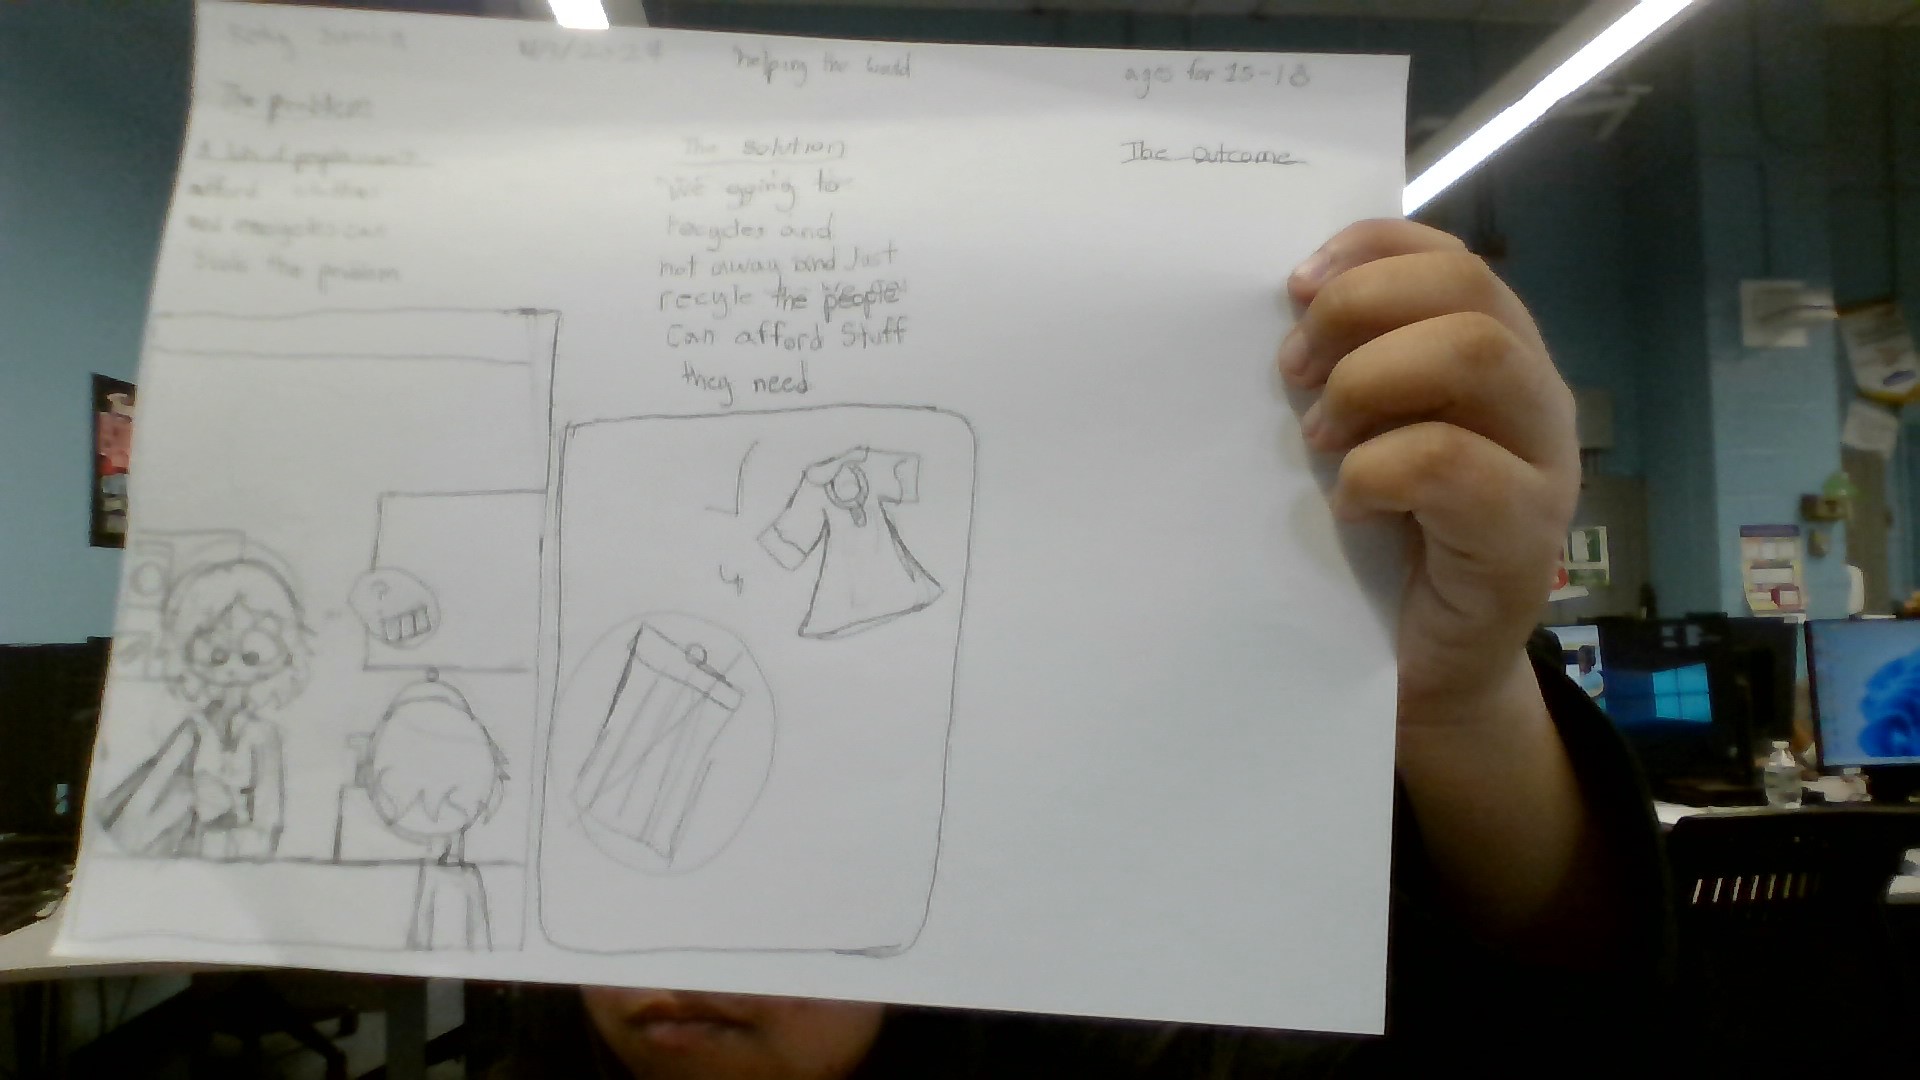 helping the world
ages for 15-18
The problem
A lots of people can't
afford
the problem
The solution
We going to
recycles and
not away and Just
recyle the people
Can afford Stuff
they need
The Outcome